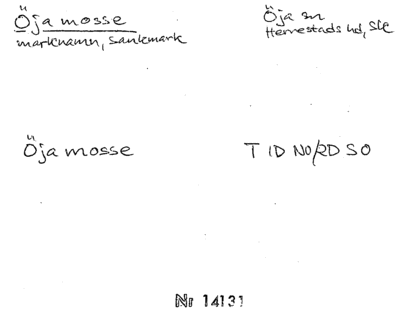 Öja mosse
marknamn, sankmark
Öja sn
Herrestads hd, Skå
Öja mosse
T ID NO/RD SO
Nr 14131